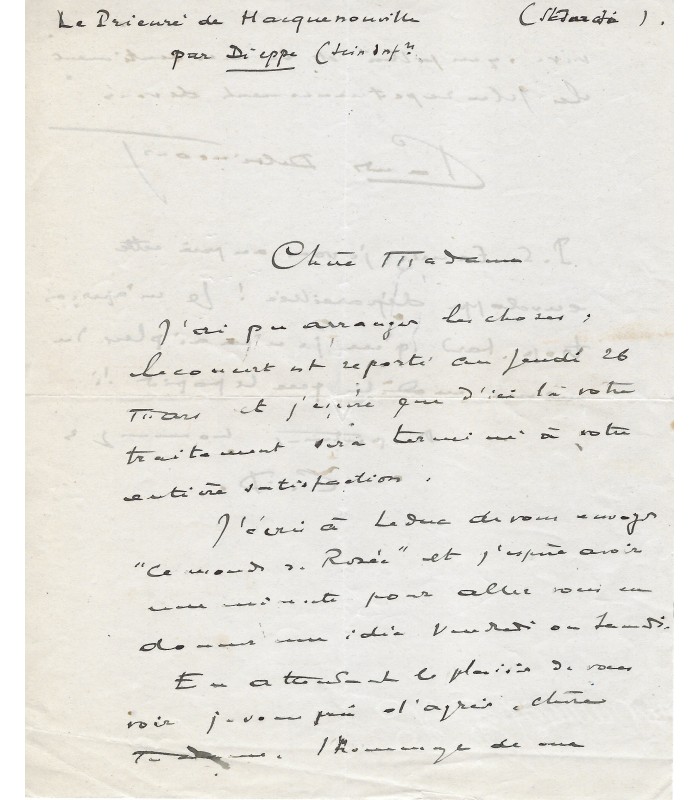 Le Prieuré de Hacquenouville
par Dieppe
Chère Madame
J'ai pu arranger les choses ;
le concert est reporté au Jeudi 26
Mars et j'espère que d'ici là votre
traitement sera terminé à votre
entière satisfaction.
J'écris à Leduc de vous envoyer
"Ce monde de Rosée" et j'espère avoir
une minute pour aller vous en
donner une idée Vendredi ou Lundi.
En attendant le plaisir de vous
voir je vous prie d'agréer, chère
Madame, l'Hommage de mes